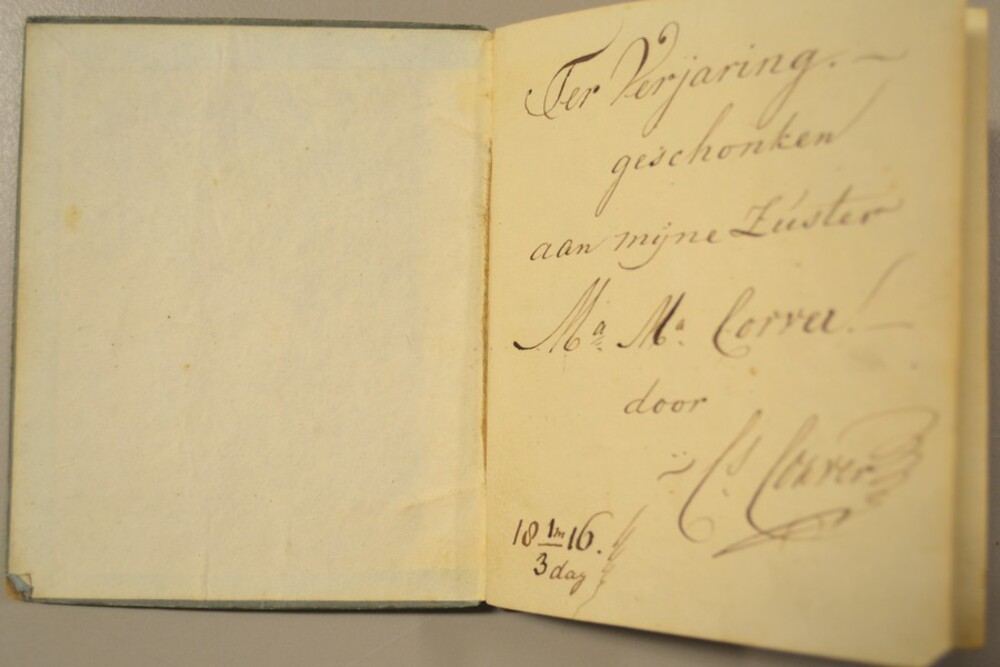 Ter Verjaring. —
geschonken
aan mijne Zúster
Ma. Ma. Correr! —
door
Cs. Correr
18 1m 16.
3 day